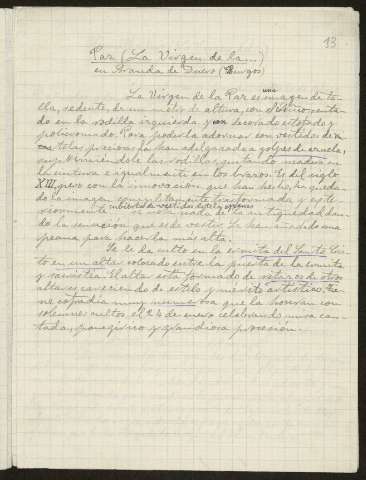 13
Paz (La Virgen de la...)
en Aranda de Duero (Burgos)
La Virgen de la Paz es una imagen de ta-
lla, sedente, de un metro de altura, con el Niño senta-
do en la rodilla izquierda, y decorado estofado y
policromado. Para poderla adornar con vestidos de ri-
cas telas preciosas la han adelgazado a golpes de azuela,
suprimiéndole las rodillas, entando madera en
la cintura e igualmente en los brazos. Es del siglo
XIII, pero con la innovación que han hecho, ha queda-
do la imagen completamente transformada y exte-
riormente cubierta de vestidos de tela y joyas
no nada de la antigüedad, dan-
do la sensación que es de vestir. Le han añadido una
peana para hacerla más alta.
Se le da culto en la ermita del Santo Cris-
to en un altar colocado entre la puerta de la ermita
y sacristía. El altar está formado de retazos de otros
altares, careciendo de estilo y mérito artístico. Tie-
ne cofradía muy numerosa que la honran con
solemnes cultos, el 24 de enero celebrando misa can-
tada, panegírico y grandiosa procesión.